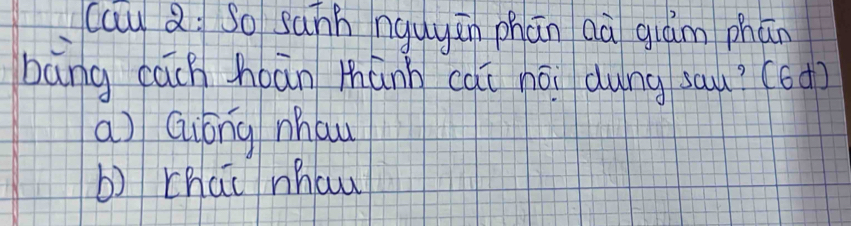 Câu 2: So sánh nguyên phân và giảm phân
bằng cách hoàn thành các nội dung sau? (6đ)
a) Giống nhau
b) Khác nhau